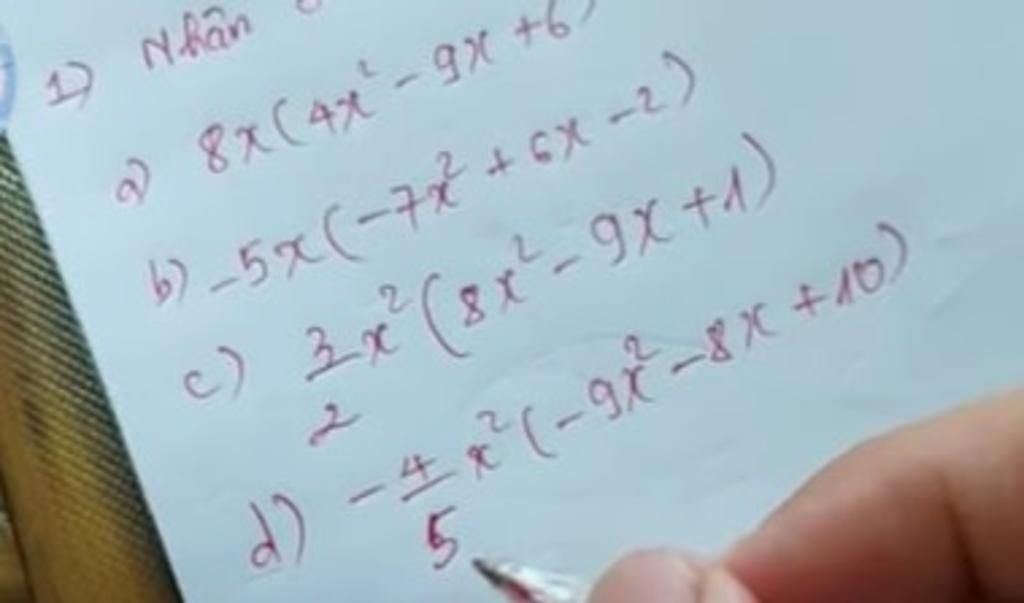 1) Nhân
a) 8x(4x² - 9x + 6)
b) -5x(-7x² + 6x - 2)
c) 3/2 x² (8x² - 9x + 1)
d) -4/5 x² (-9x² - 8x + 10)